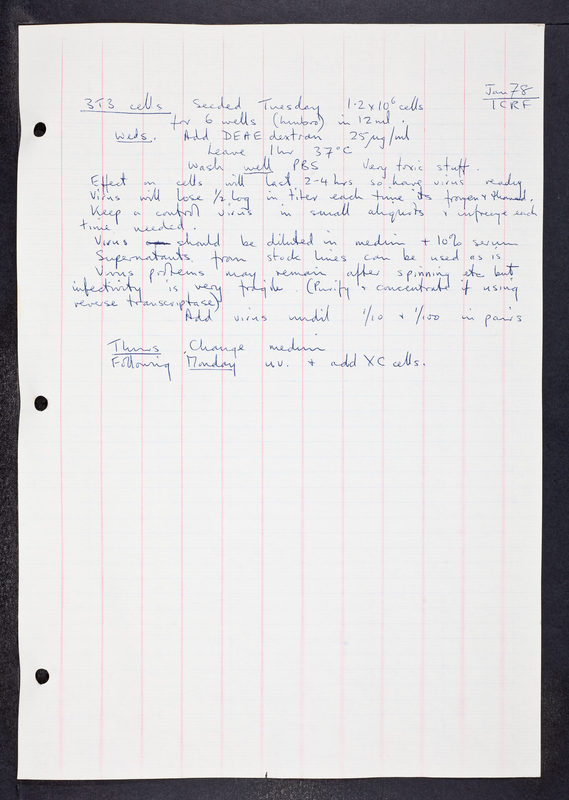 Jan 78
ICRF
3T3 cells Seeded Tuesday 1.2 x 10⁶ cells
for 6 wells (Linbro) in 12 ml.
Weds. Add DEAE dextran 25 µg/ml
Leave 1 hr 37°C
Wash well PBS Very toxic stuff.
Effect on cells will last 2-4 hrs so have virus ready
Virus will lose ½ log in titer each time its frozen & thawed.
Keep a control virus in small aliquots & unfreeze each
time needed.
Virus should be diluted in medium + 10% serum
Supernatants from stock lines can be used as is
Virus proteins may remain after spinning etc but
infectivity is very fragile. (Purify & concentrate if using
reverse transcriptase)
Add virus undil 1/10 & 1/100 in pairs
Thurs Change medium
Following Monday u.v. + add XC cells.